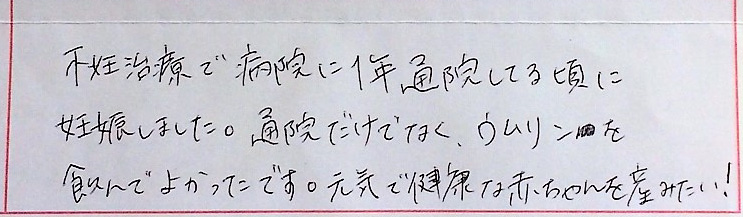 不妊治療で病院に1年通院してる頃に
妊娠しました。通院だけでなく、ウムリンを
飲んでよかったです。元気で健康な赤ちゃんを産みたい!